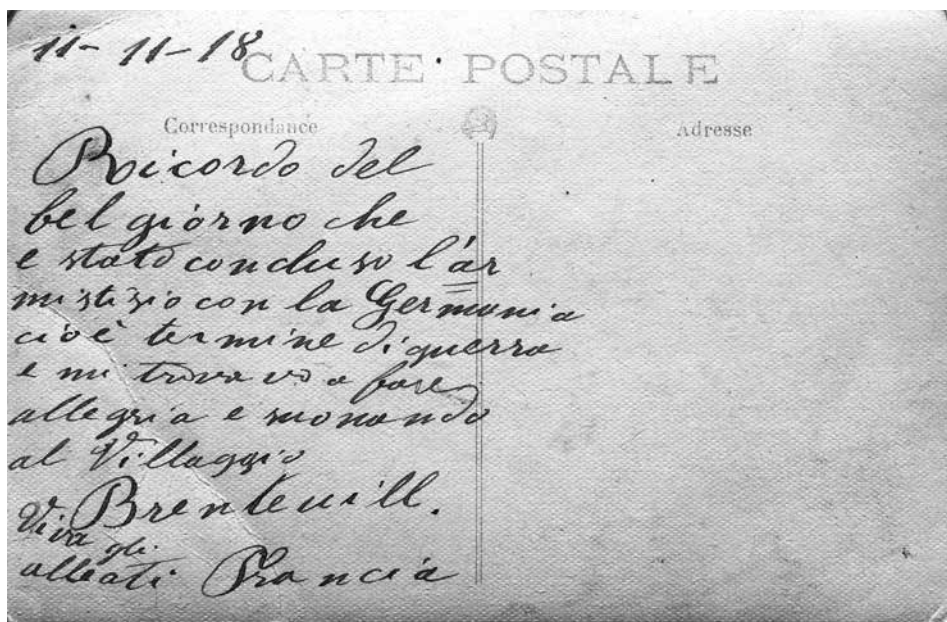 11-11-18
CARTE POSTALE
Correspondance
Adresse
Ricordo del
bel giorno che
e stato concluso l'ar
mistizio con la Germania
cioè termine di guerra
e mi trovavo a fare
allegria e suonando
al Villaggio
Brenteuill.
Viva gli
alleati Francia